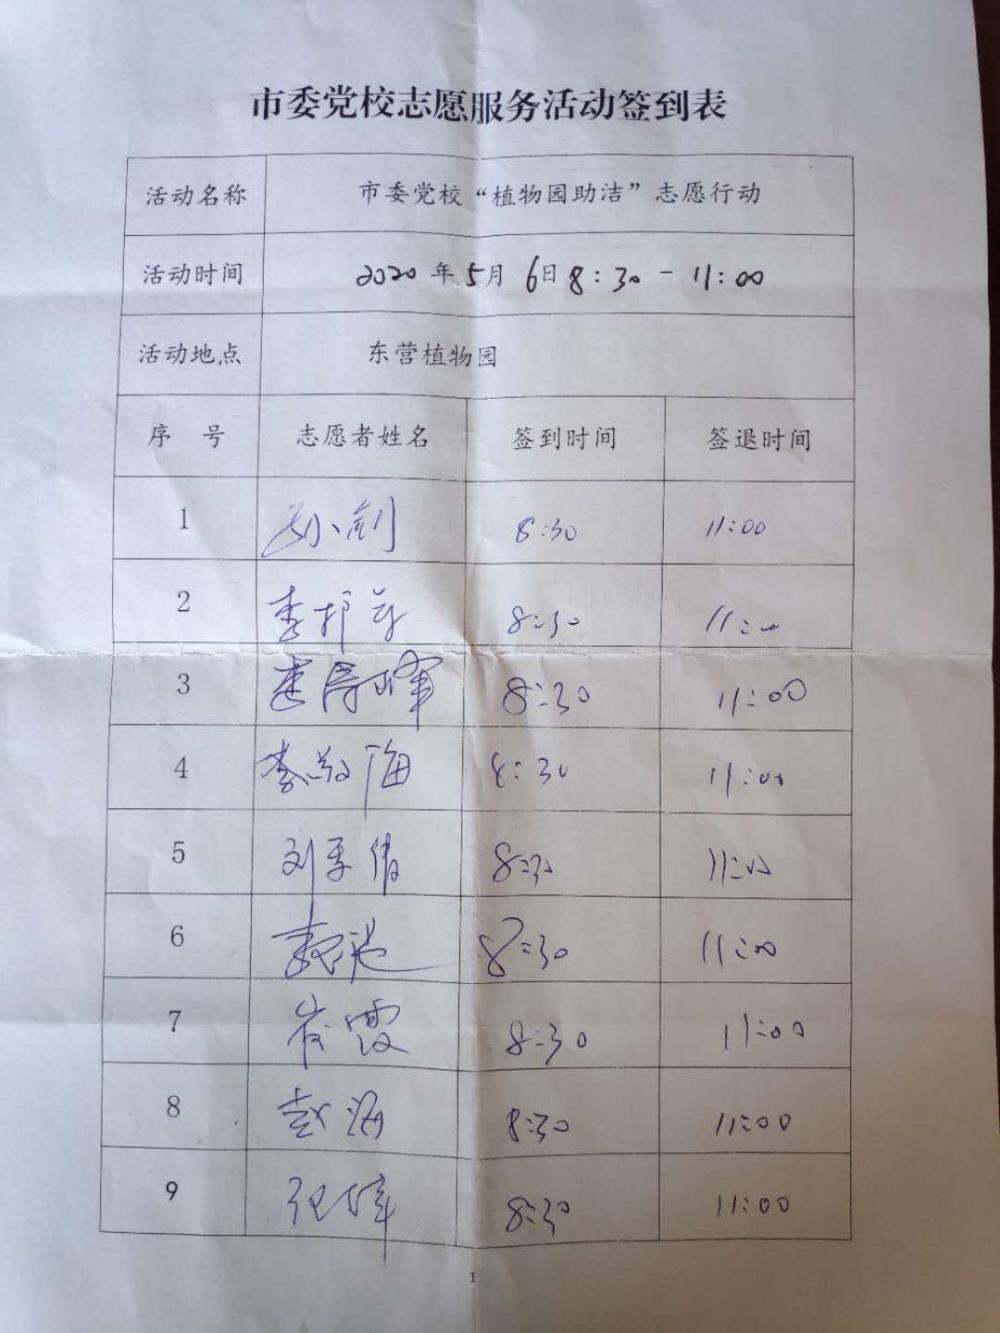 市委党校志愿服务活动签到表
活动名称 市委党校“植物园助洁”志愿行动
活动时间 2020年5月6日8:30-11:00
活动地点 东营植物园
序 号 志愿者姓名 签到时间 签退时间
1 孙剑 8:30 11:00
2 李 8:30 11:00
3 8:30 11:00
4 李 海 8:30 11:00
5 刘 倩 8:30 11:00
6 8:30 11:00
7 崔霞 8:30 11:00
8 赵海 8:30 11:00
9 张 8:30 11:00
1